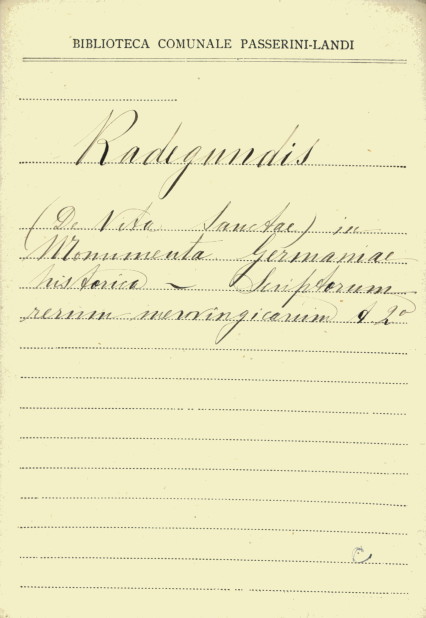 BIBLIOTECA COMUNALE PASSERINI-LANDI
Radegundis
(De Vita Sanctae) in
Monumenta Germaniae
historica - Scriptorum
rerum merovingicarum t 2º
C